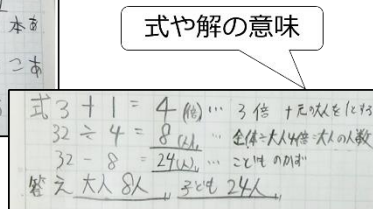 式や解の意味
本あ
こあ
式 3 + 1 = 4 (倍) … 3倍 + 元の大人を1とする
32 ÷ 4 = 8 (人) … 全体÷大人4倍=大人の人数
32 - 8 = 24(人) … こどものかず
答え 大人 8人 子ども 24人